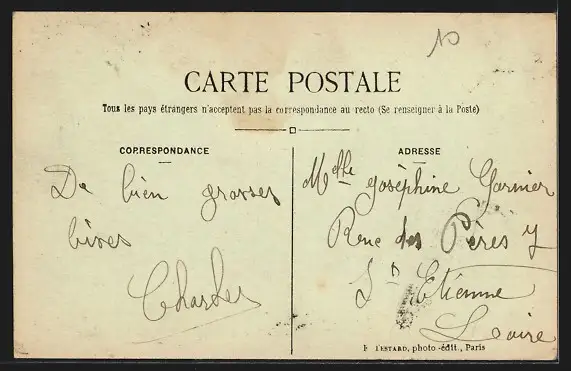 10
CARTE POSTALE
Tous les pays étrangers n'acceptent pas la correspondance au recto (Se renseigner à la Poste)
CORRESPONDANCE
De bien grosses
bises
Charles
ADRESSE
Melle Joséphine Garnier
Rue des Pères 7
St Etienne
Loire
F. TESTARD, photo-édit., Paris